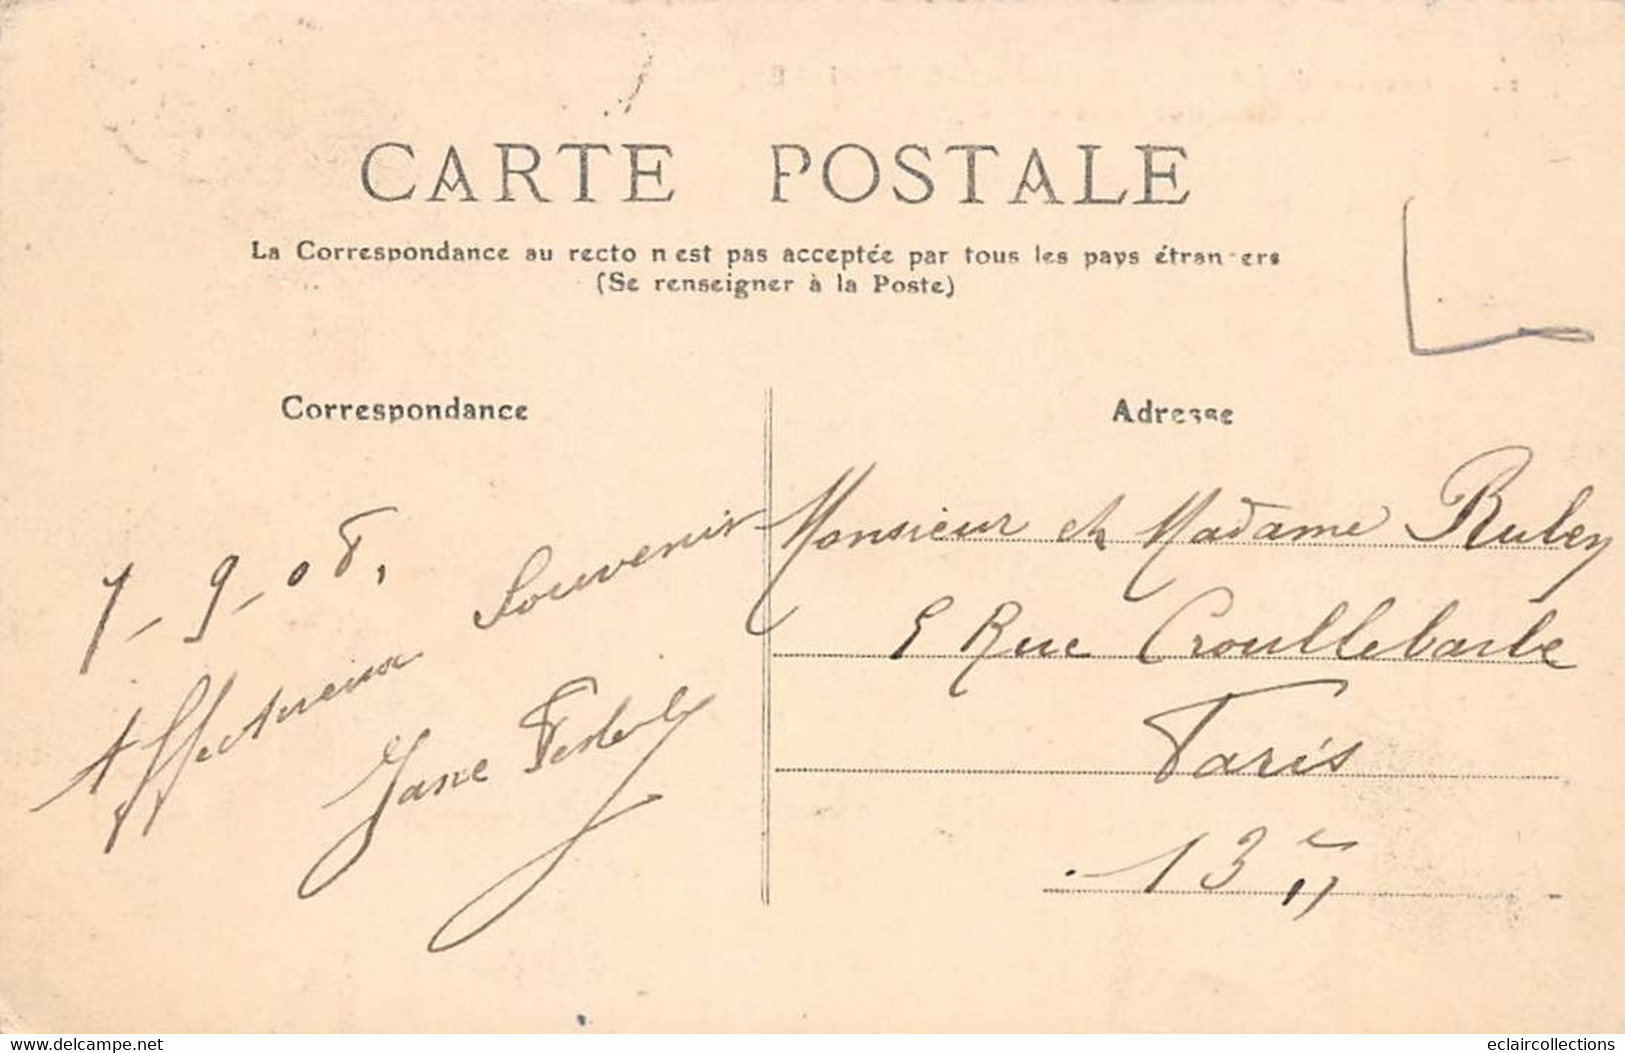 CARTE POSTALE
La Correspondance au recto n est pas acceptée par tous les pays étrangers
(Se renseigner à la Poste)
Correspondance
7-9-08.
Affectueux Souvenir
Jane
Adresse
Monsieur et Madame Rubey
5 Rue Croullebarbe
Paris
13e
www.delcampe.net
eclaircollections